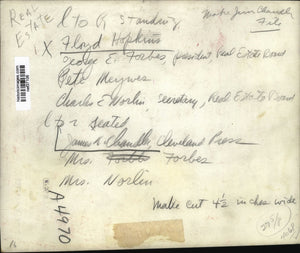 REAL
ESTATE
L to R Standing
Make Jim Chandl
File
1X Floyd Hopkins
George E. Forbes president, Real Estate Board
Pete
Charles E Norlin, Secretary, Real Estate Board
L to R Seated
James R. Chandler, Cleveland Press
Mrs. Forbes
Mrs. Norlin
Make cut 4 1/2 inches wide
A4970